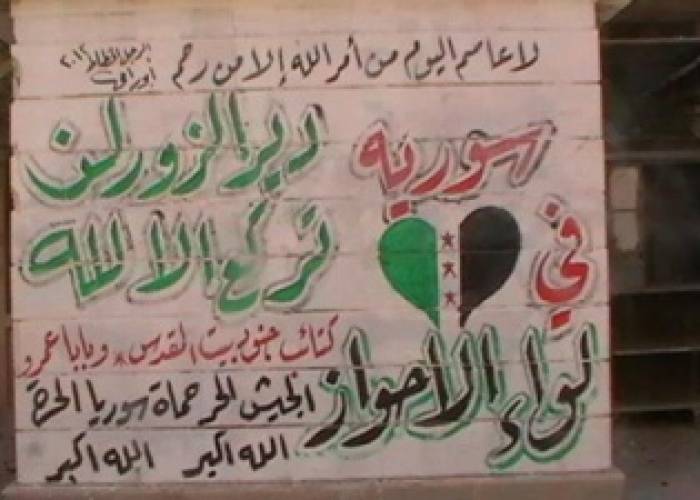 لا عاصم اليوم من أمر الله إلا من رحم
٢٠١٢
سورية
في
دير الزور لن
تركع إلا لله
كتائب جنود بيت المقدس وبابا عمرو
لواء الاحواز
الجيش الحر حماة سوريا الحرة
الله اكبر الله اكبر